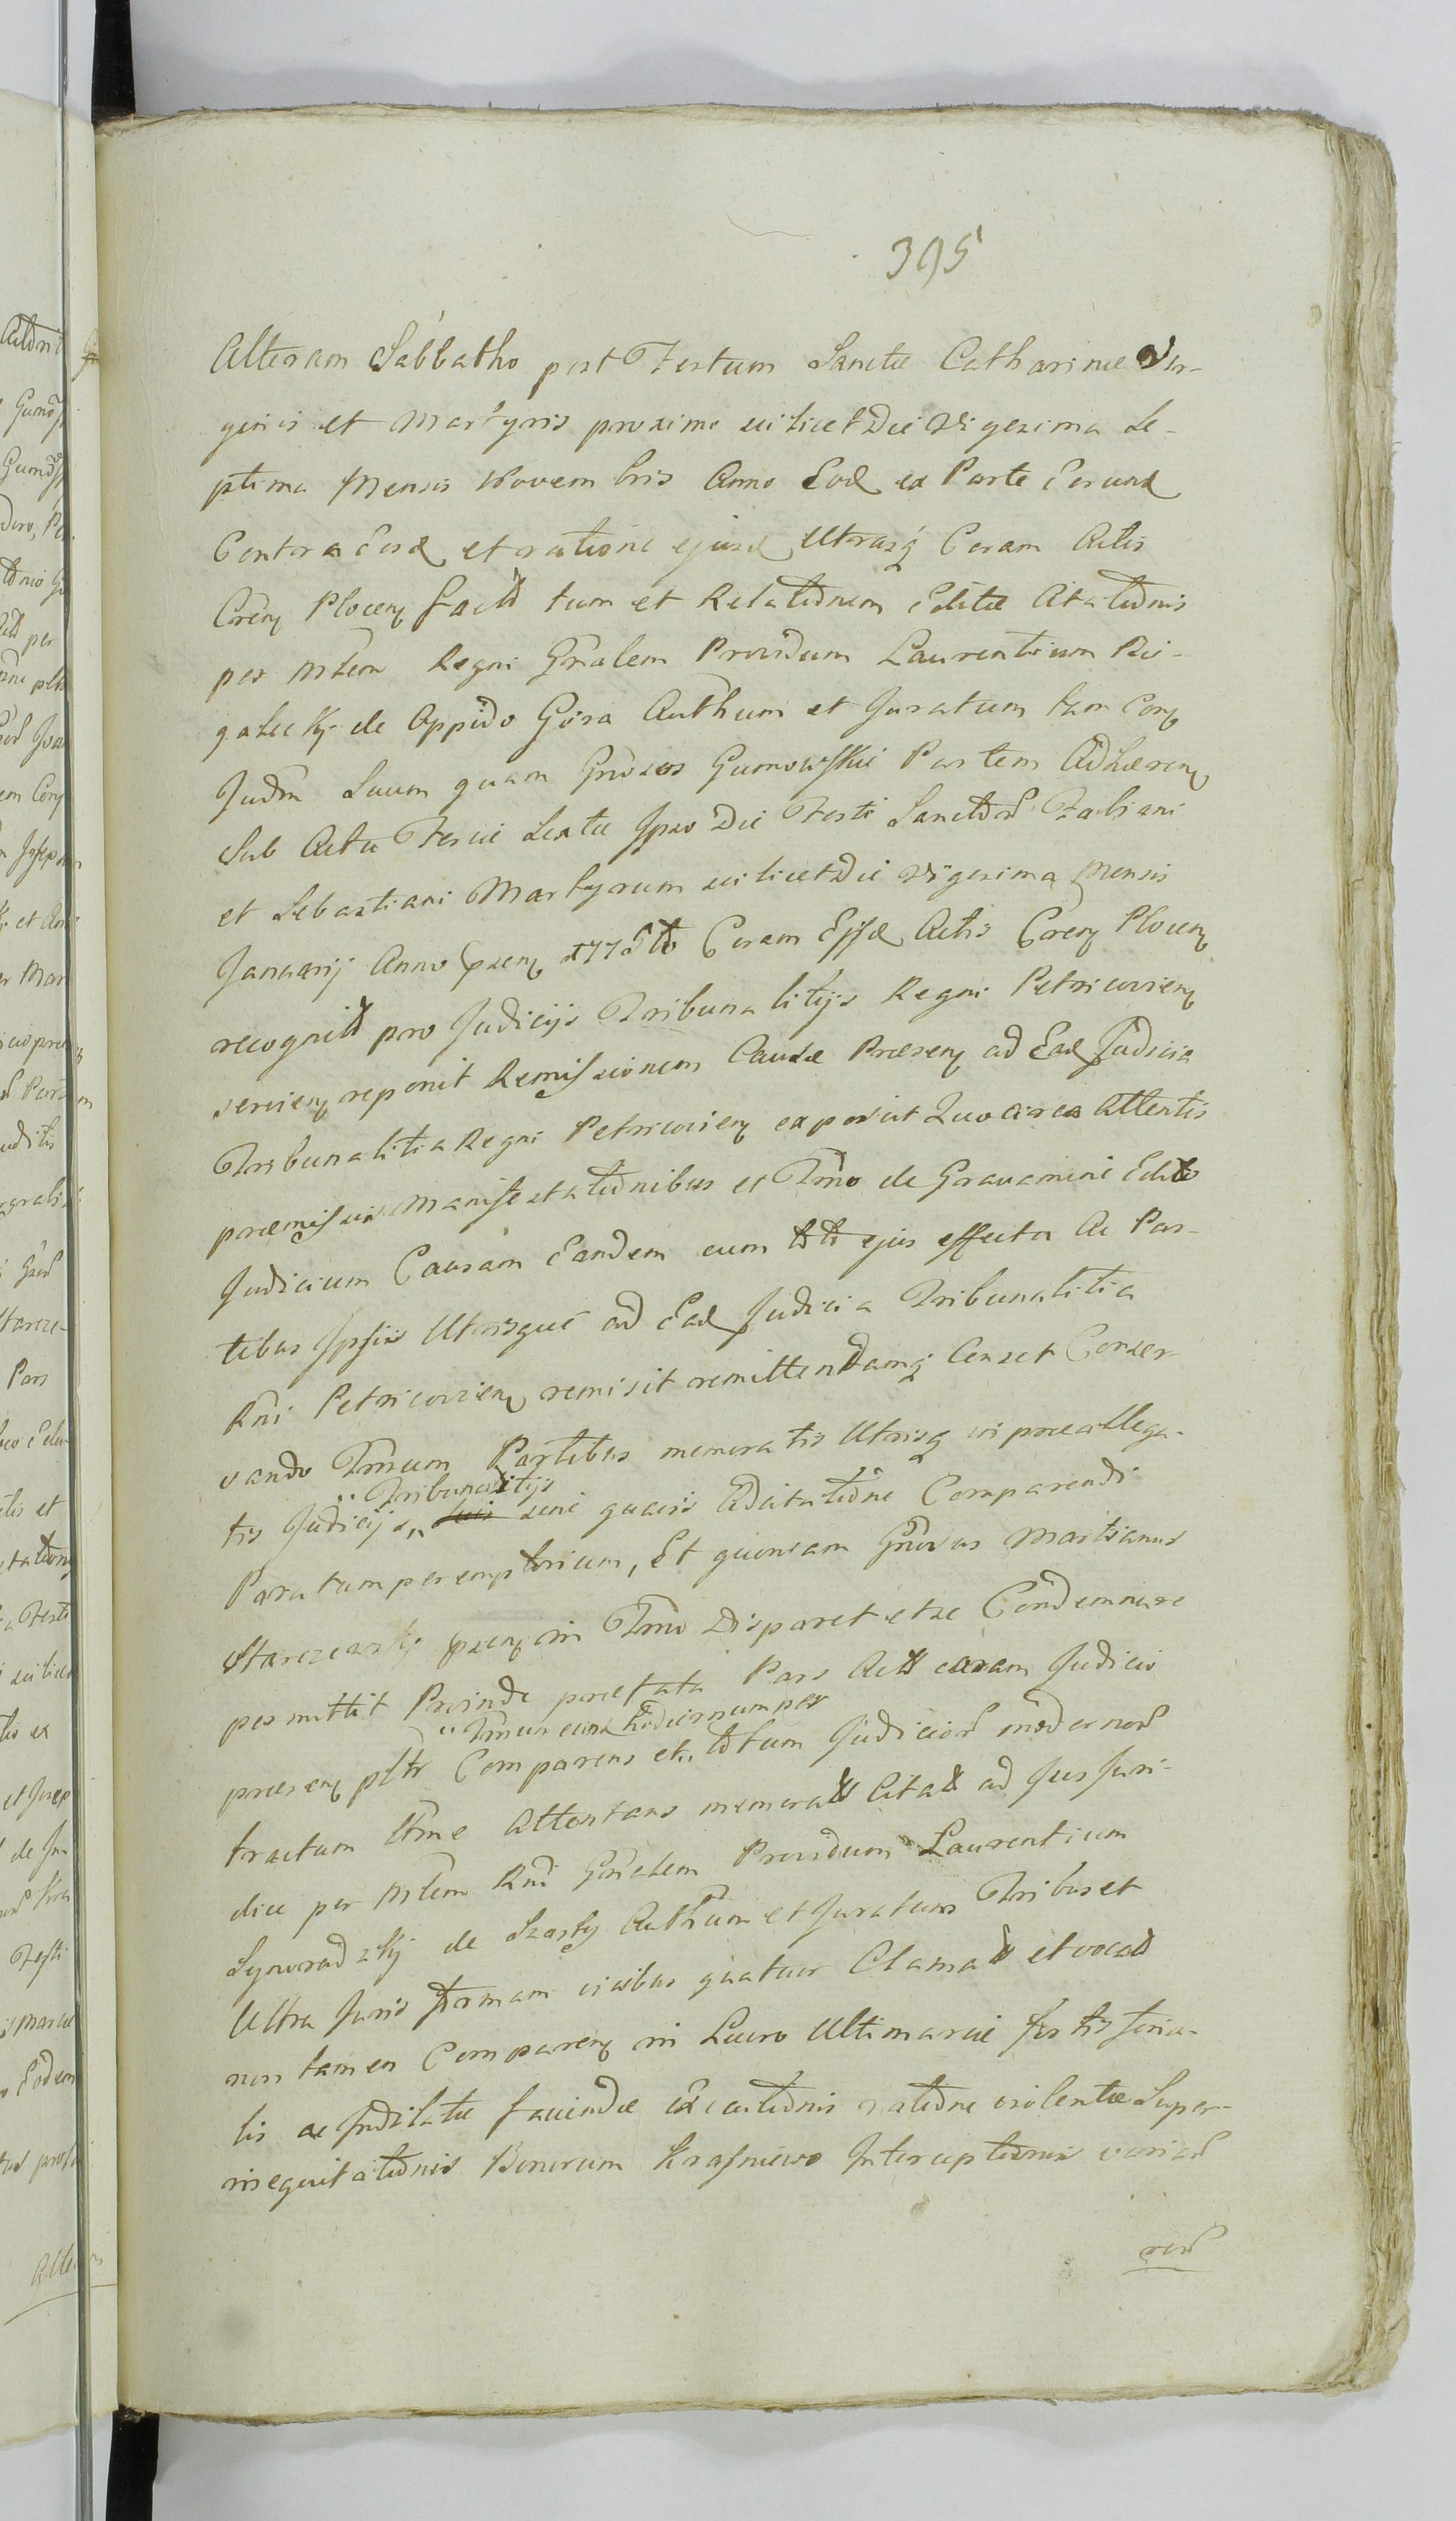 395
Alteram Sabbatho post Festum Sanctæ Catharinæ Vir-
ginis et Martyris proximo scilicet Die Vigesima Se-
ptima Mensis Novembris Anno Eod ex Parte Eorund
Contra Eosd et ratione ejusd Utrasq Coram Actis
Cren Plocen fact tum et Relationem Editæ Citationis
per Mtem Regni Gnalem Providum Laurentium
de Oppido Góra Authum et Juratum tam Con
Judm Suum quam Gnosos Gumowskie Partem Adhæren
Sub Actu Feriæ Sextæ Ipso Die Festi Sanctor Fabiani
et Sebastiani Martyrum scilicet Die Vigesima Mensis
Januarij Anno Præsen 1775to Coram Eisd Actis Cren Plocen
recognit pro Judicijs Tribunalitijs Regni Petricovien
servien reponit Remissionem Causæ Præsen ad Ead Judicia
Tribunalitia Regni Petricovien exposcit Quocirca Attentis
præmissis Manifestationibus et Tmo de Gravamine Edito
Judicium Causam Eandem cum toto ejus effectu Ac Par-
tibus Ipsis Utrisque ad Ead Judicia Tribunalitia
Rni Petricovien remisit remittendamq Censet Conser-
vando Tmum Partibus memoratis Utrisq in præallega-
tis Judicijs "Tribunalitijs" sine quavis Adcitatione Comparendi
Paratum peremptorium, Et quoniam Gnosus Martianus
Starczewskj præsen in Tmo Disparet et se Condemnare
permittit Proinde præfata Pars Act coram Judicio
præsen pltr Comparens et "Tmum eund hodiernum per" totum Judicior modernor
tractum Ttme Attentans memorat Citat ad Jus Juri-
dice per Mtem Rni Gnalem Providum Laurentium
Synoradzkj de Szasty Authum et Juratum Tribus et
Ultra Juris formam vicibus quatuor Clamat et vocat
non tamen Comparen in Lucro Ultimariæ fortis foria-
lis ac Indilatæ faciendæ Executionis ratione violentæ Super-
inequitationis Bonorum Krasniewo Interceptionis variar
rer